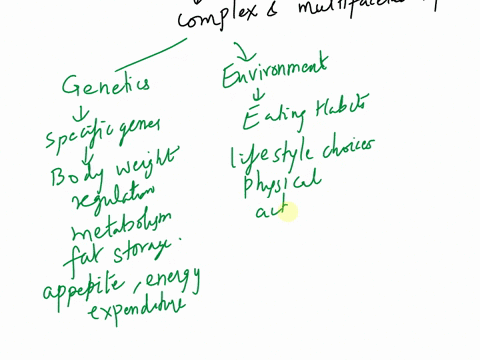 complex & multifaceted
Genetics
Specific genes
Body weight
regulation
metabolism
fat storage.
appetite, energy
expenditure
Environment
Eating Habits
lifestyle choices
physical
act